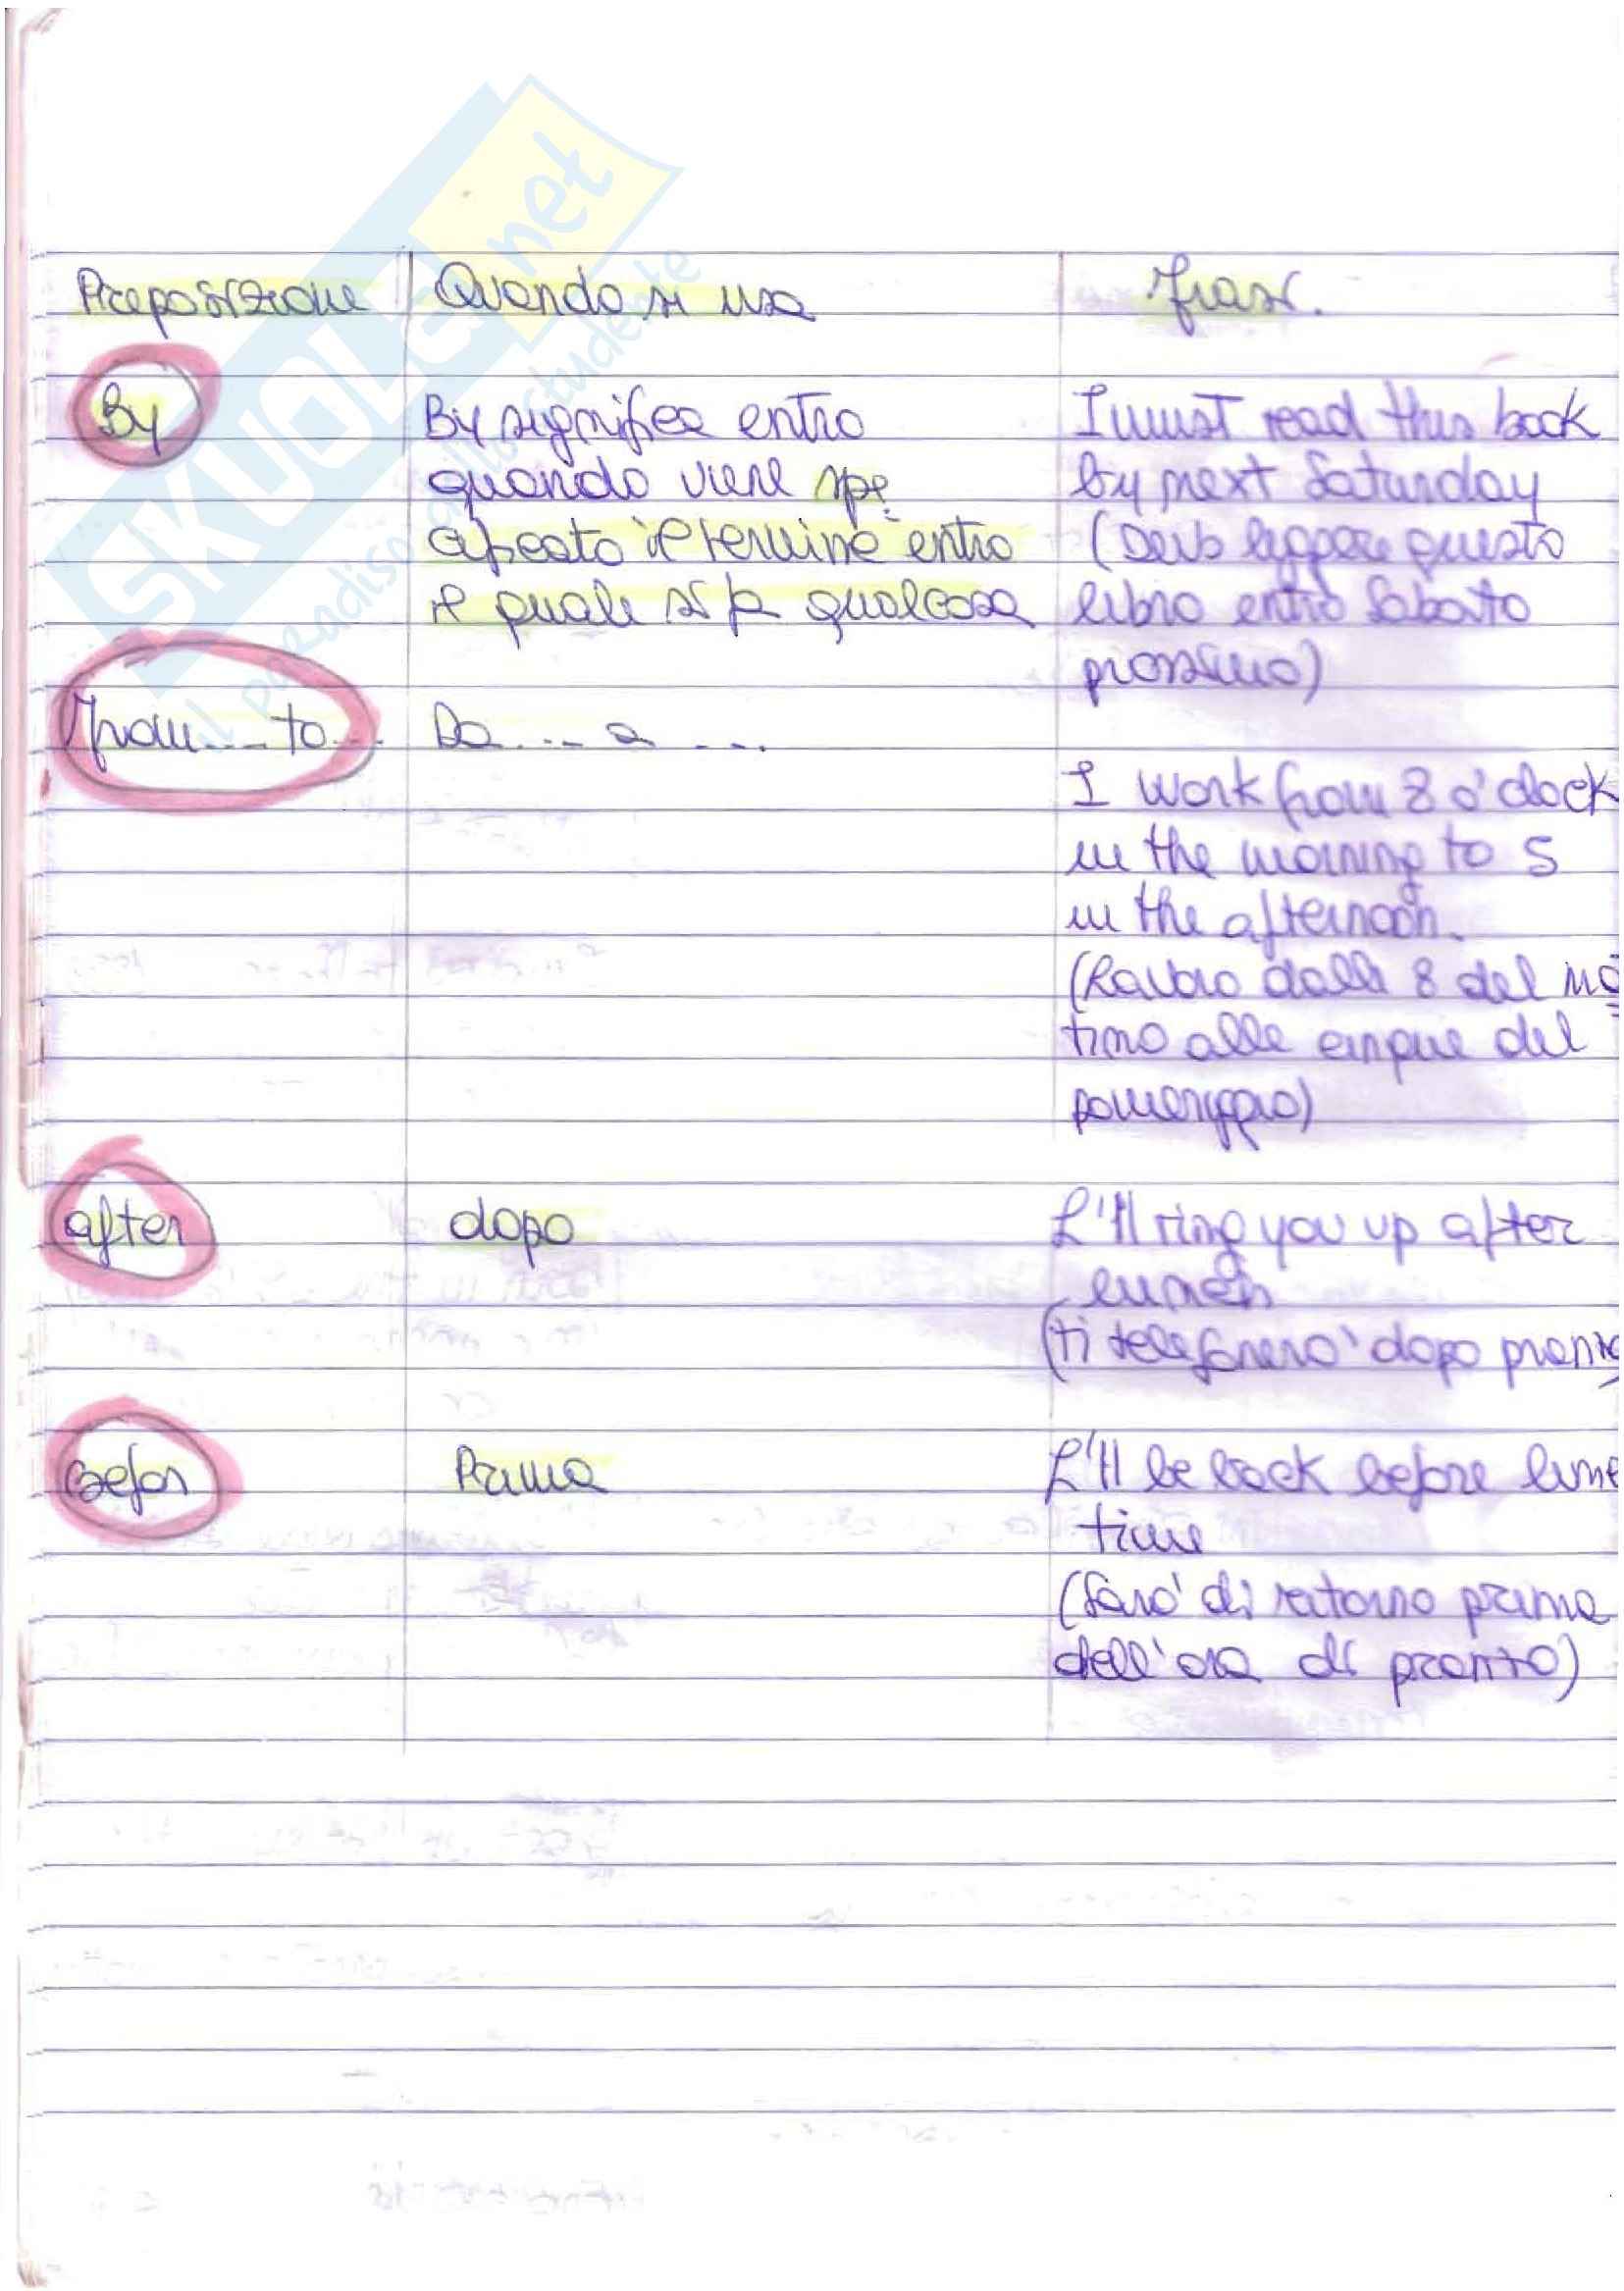 SKUOLA.net
il paradiso dello studente
Preposizione Quando si usa Frasi.
By By significa entro I must read this book
quando viene spe by next Saturday
cificato il termine entro (Devo leggere questo
il quale si fa qualcosa libro entro Sabato
prossimo)
From.... to... Da.... a ....
I work from 8 o'clock
in the morning to 5
in the afternoon.
(Lavoro dalle 8 del ma
tino alle cinque del
pomeriggio)
after dopo I'll ring you up after
lunch
(ti telefonerò dopo pranzo)
Befor Prima I'll be back before
time
(Sarò di ritorno prima
dell'ora di pranzo)